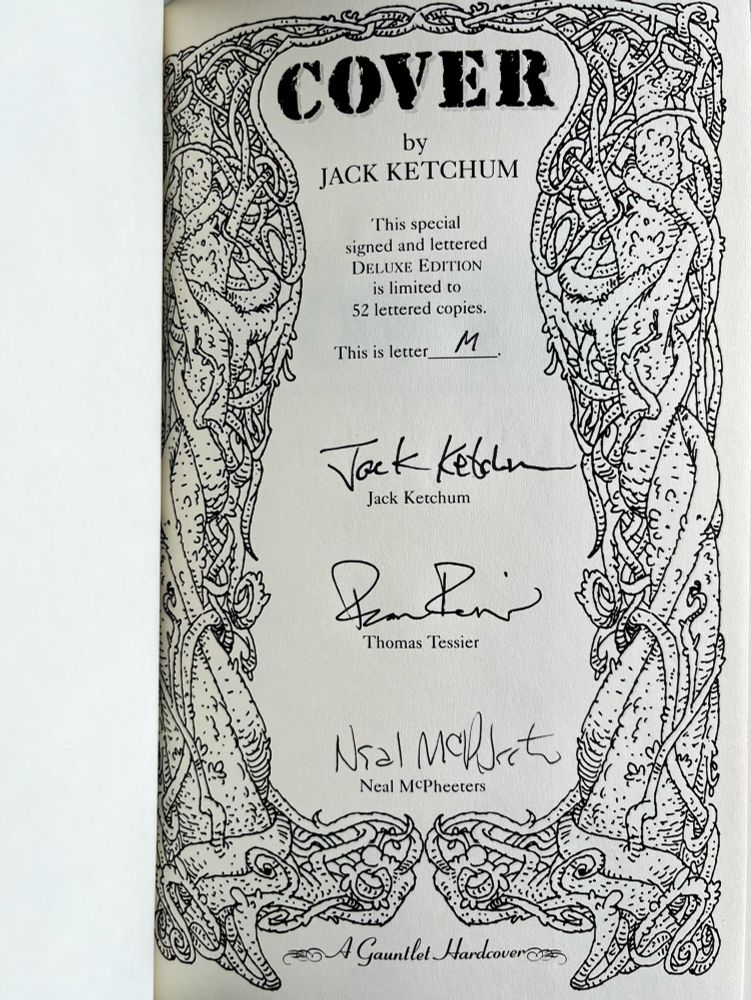 COVER
by
JACK KETCHUM
This special
signed and lettered
DELUXE EDITION
is limited to
52 lettered copies.
This is letter M.
Jack Ketchum
Jack Ketchum
Thomas Tessier
Neal McPheeters
Neal McPheeters
A Gauntlet Hardcover